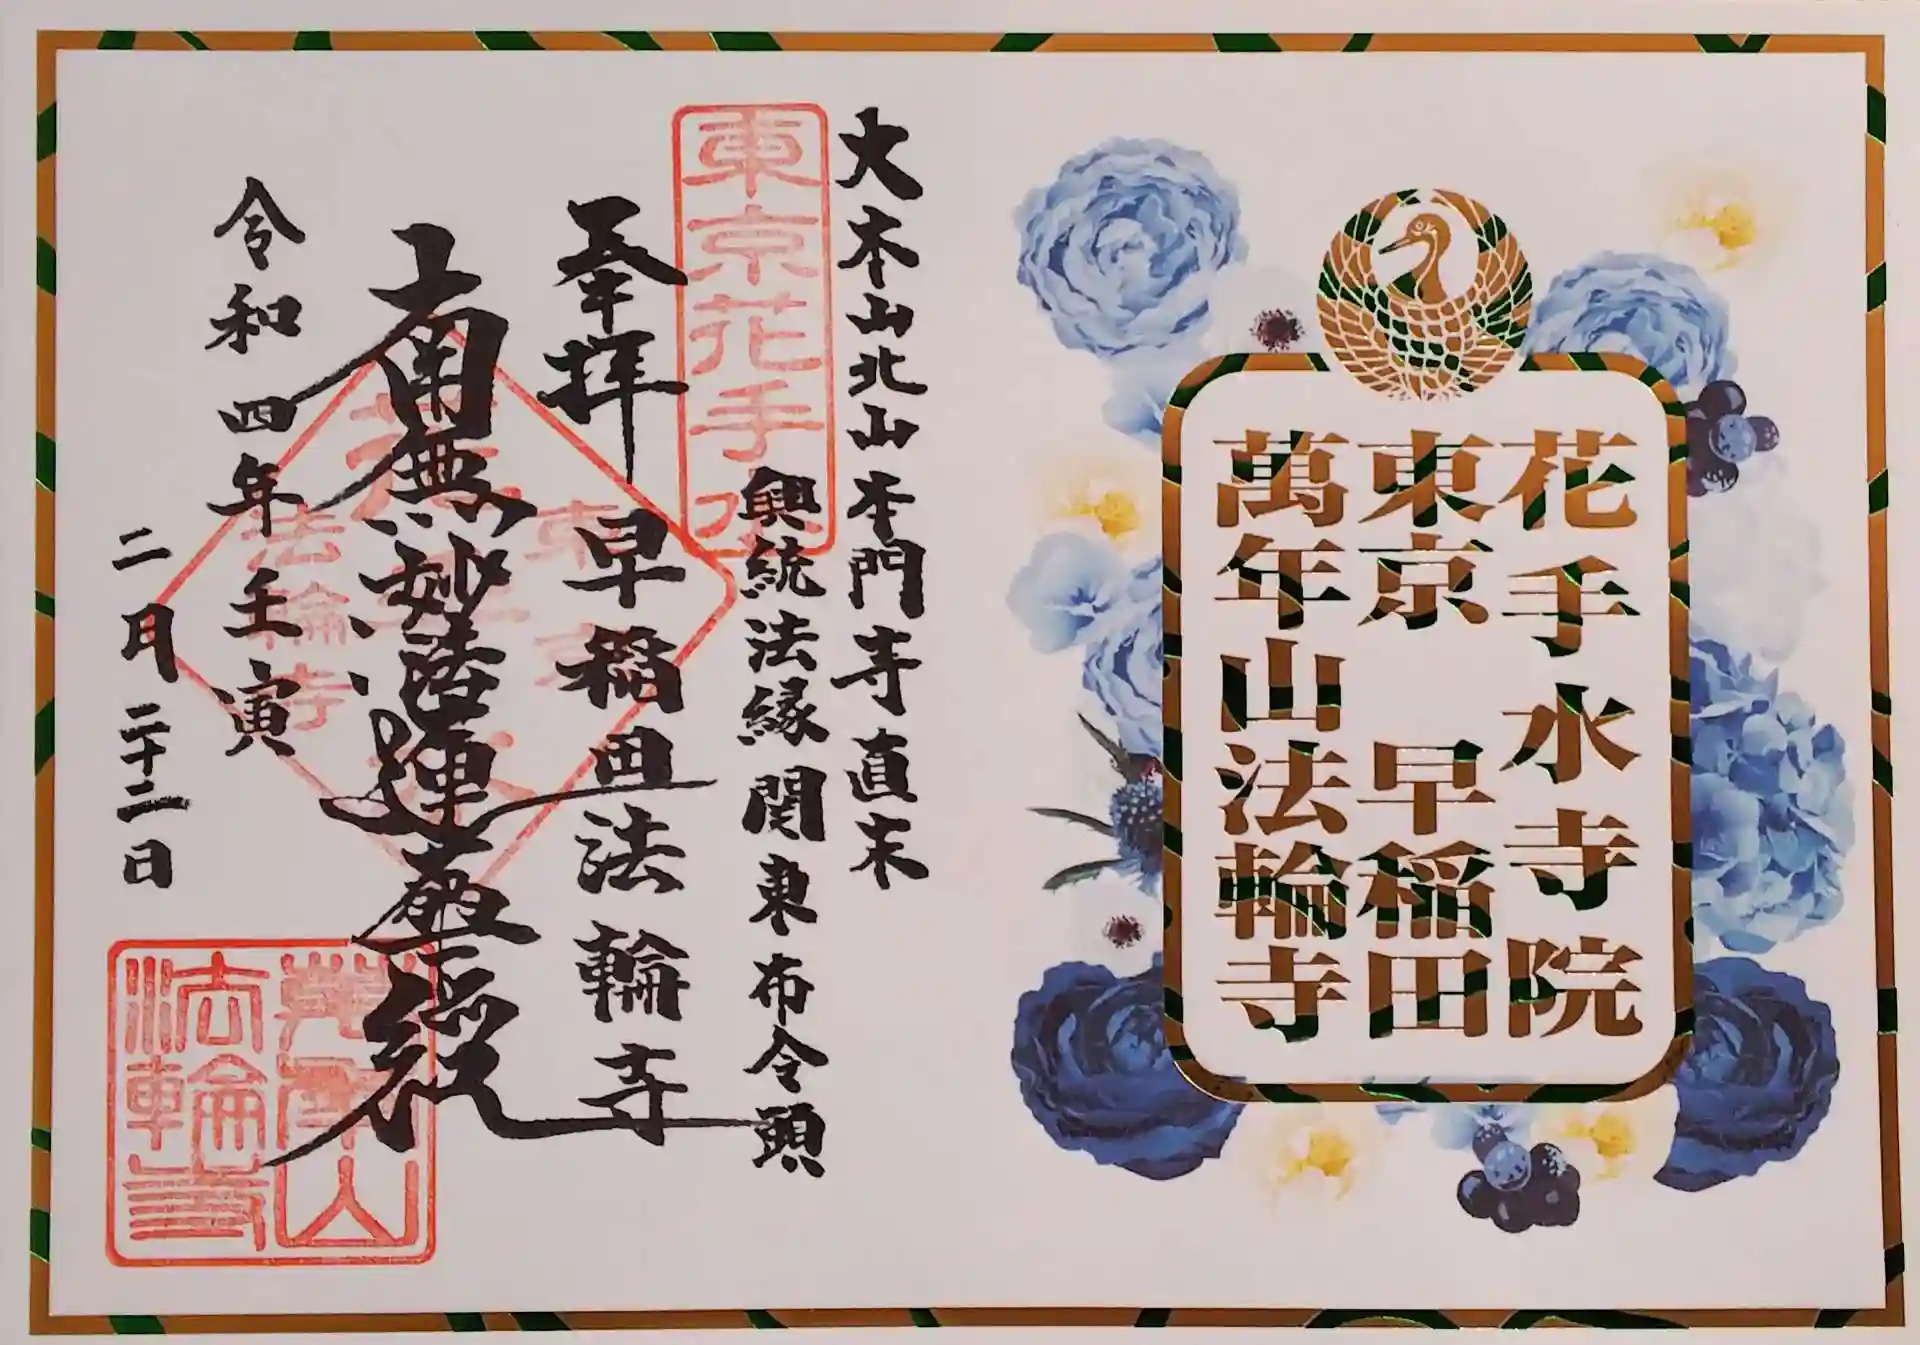 花手水寺院
東京 早稲田
萬年山法輪寺
大本山北山本門寺直末
興統法縁関東布令頭
東京花手水
奉拝
早稲田法輪寺
南無妙法蓮華経
令和四年壬寅
二月二十二日
萬年山
法輪寺